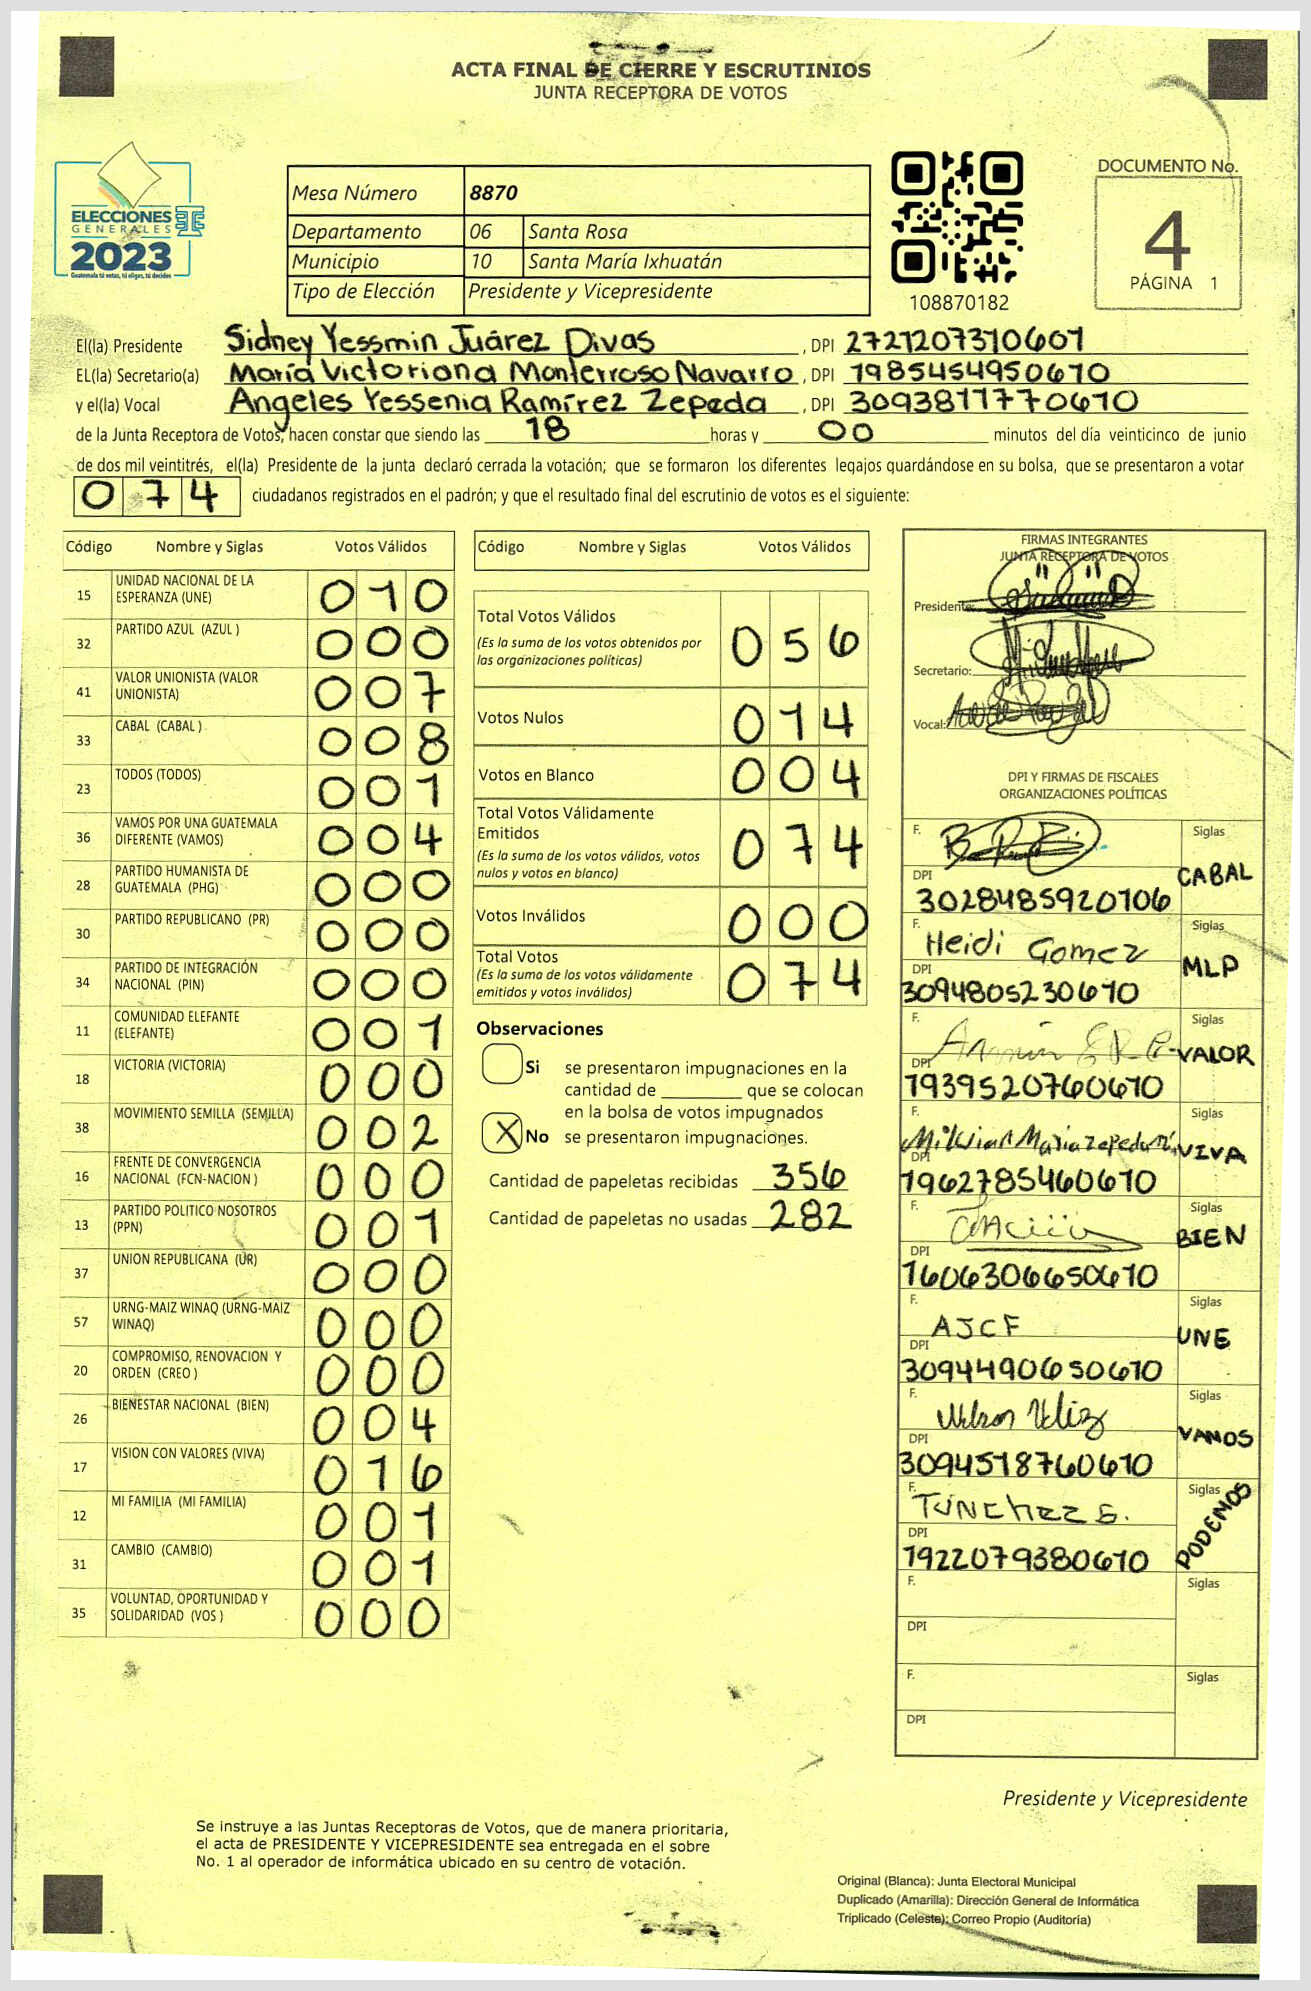 ACTA FINAL DE CIERRE Y ESCRUTINIOS
JUNTA RECEPTORA DE VOTOS
ELECCIONES
GENERALES
2023
Guatemala tú votas, tú eliges, tú decides
Mesa Número 8870
Departamento 06 Santa Rosa
Municipio 10 Santa María Ixhuatán
Tipo de Elección Presidente y Vicepresidente
108870182
DOCUMENTO No.
4
PÁGINA 1
El(la) Presidente Sidney Yessmin Juárez Divas, DPI 2721207310601
EL(la) Secretario(a) María Victoriana Monterroso Navarro, DPI 1985454950610
y el(la) Vocal Angeles Yessenia Ramírez Zepeda, DPI 3093811770610
de la Junta Receptora de Votos, hacen constar que siendo las 18 horas y 00 minutos del día veinticinco de junio
de dos mil veintitrés, el(la) Presidente de la junta declaró cerrada la votación; que se formaron los diferentes legajos guardándose en su bolsa, que se presentaron a votar
074 ciudadanos registrados en el padrón; y que el resultado final del escrutinio de votos es el siguiente:
Código Nombre y Siglas Votos Válidos
15 UNIDAD NACIONAL DE LA ESPERANZA (UNE) 010
32 PARTIDO AZUL (AZUL ) 000
41 VALOR UNIONISTA (VALOR UNIONISTA) 007
33 CABAL (CABAL ) 008
23 TODOS (TODOS) 001
36 VAMOS POR UNA GUATEMALA DIFERENTE (VAMOS) 004
28 PARTIDO HUMANISTA DE GUATEMALA (PHG) 000
30 PARTIDO REPUBLICANO (PR) 000
34 PARTIDO DE INTEGRACIÓN NACIONAL (PIN) 000
11 COMUNIDAD ELEFANTE (ELEFANTE) 001
18 VICTORIA (VICTORIA) 000
38 MOVIMIENTO SEMILLA (SEMILLA) 002
16 FRENTE DE CONVERGENCIA NACIONAL (FCN-NACION ) 000
13 PARTIDO POLITICO NOSOTROS (PPN) 001
37 UNION REPUBLICANA (UR) 000
57 URNG-MAIZ WINAQ (URNG-MAIZ WINAQ) 000
20 COMPROMISO, RENOVACION Y ORDEN (CREO ) 000
26 BIENESTAR NACIONAL (BIEN) 004
17 VISION CON VALORES (VIVA) 016
12 MI FAMILIA (MI FAMILIA) 001
31 CAMBIO (CAMBIO) 001
35 VOLUNTAD, OPORTUNIDAD Y SOLIDARIDAD (VOS ) 000
Código Nombre y Siglas Votos Válidos
Total Votos Válidos 056
(Es la suma de los votos obtenidos por
las organizaciones políticas)
Votos Nulos 014
Votos en Blanco 004
Total Votos Válidamente
Emitidos 074
(Es la suma de los votos válidos, votos
nulos y votos en blanco)
Votos Inválidos 000
Total Votos 074
(Es la suma de los votos válidamente
emitidos y votos inválidos)
Observaciones
Si se presentaron impugnaciones en la
cantidad de que se colocan
en la bolsa de votos impugnados
X No se presentaron impugnaciones.
Cantidad de papeletas recibidas 356
Cantidad de papeletas no usadas 282
FIRMAS INTEGRANTES
JUNTA RECEPTORA DE VOTOS
Presidente:
Secretario:
Vocal:
DPI Y FIRMAS DE FISCALES
ORGANIZACIONES POLÍTICAS
F. Siglas
CABAL
DPI
3028485920106
F. Heidi Gomez Siglas
MLP
DPI
3094805230610
F. Siglas
VALOR
DPI
1939520760610
F. Siglas
VIVA
DPI
1962785460610
F. Siglas
BIEN
DPI
1606306650610
F. AJCF Siglas
UNE
DPI
3094490650610
F. Siglas
VAMOS
DPI
3094518760610
F. Siglas
PODEMOS
DPI
1922079380610
F. Siglas
DPI
F. Siglas
DPI
Presidente y Vicepresidente
Se instruye a las Juntas Receptoras de Votos, que de manera prioritaria,
el acta de PRESIDENTE Y VICEPRESIDENTE sea entregada en el sobre
No. 1 al operador de informática ubicado en su centro de votación.
Original (Blanca): Junta Electoral Municipal
Duplicado (Amarilla): Dirección General de Informática
Triplicado (Celeste): Correo Propio (Auditoría)